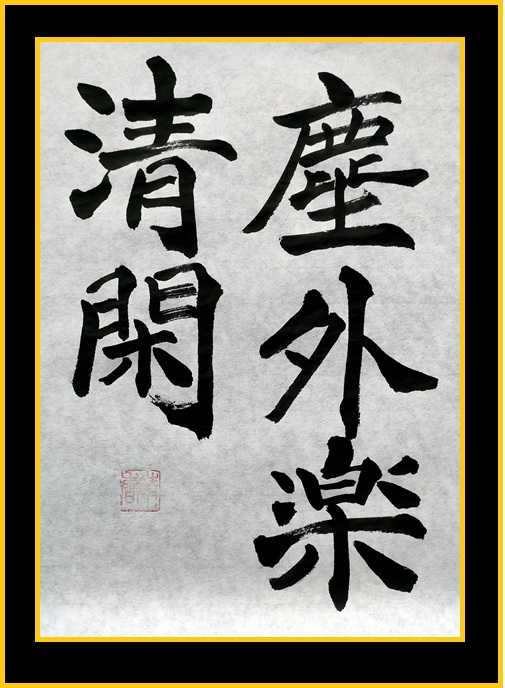 塵外楽
清閑